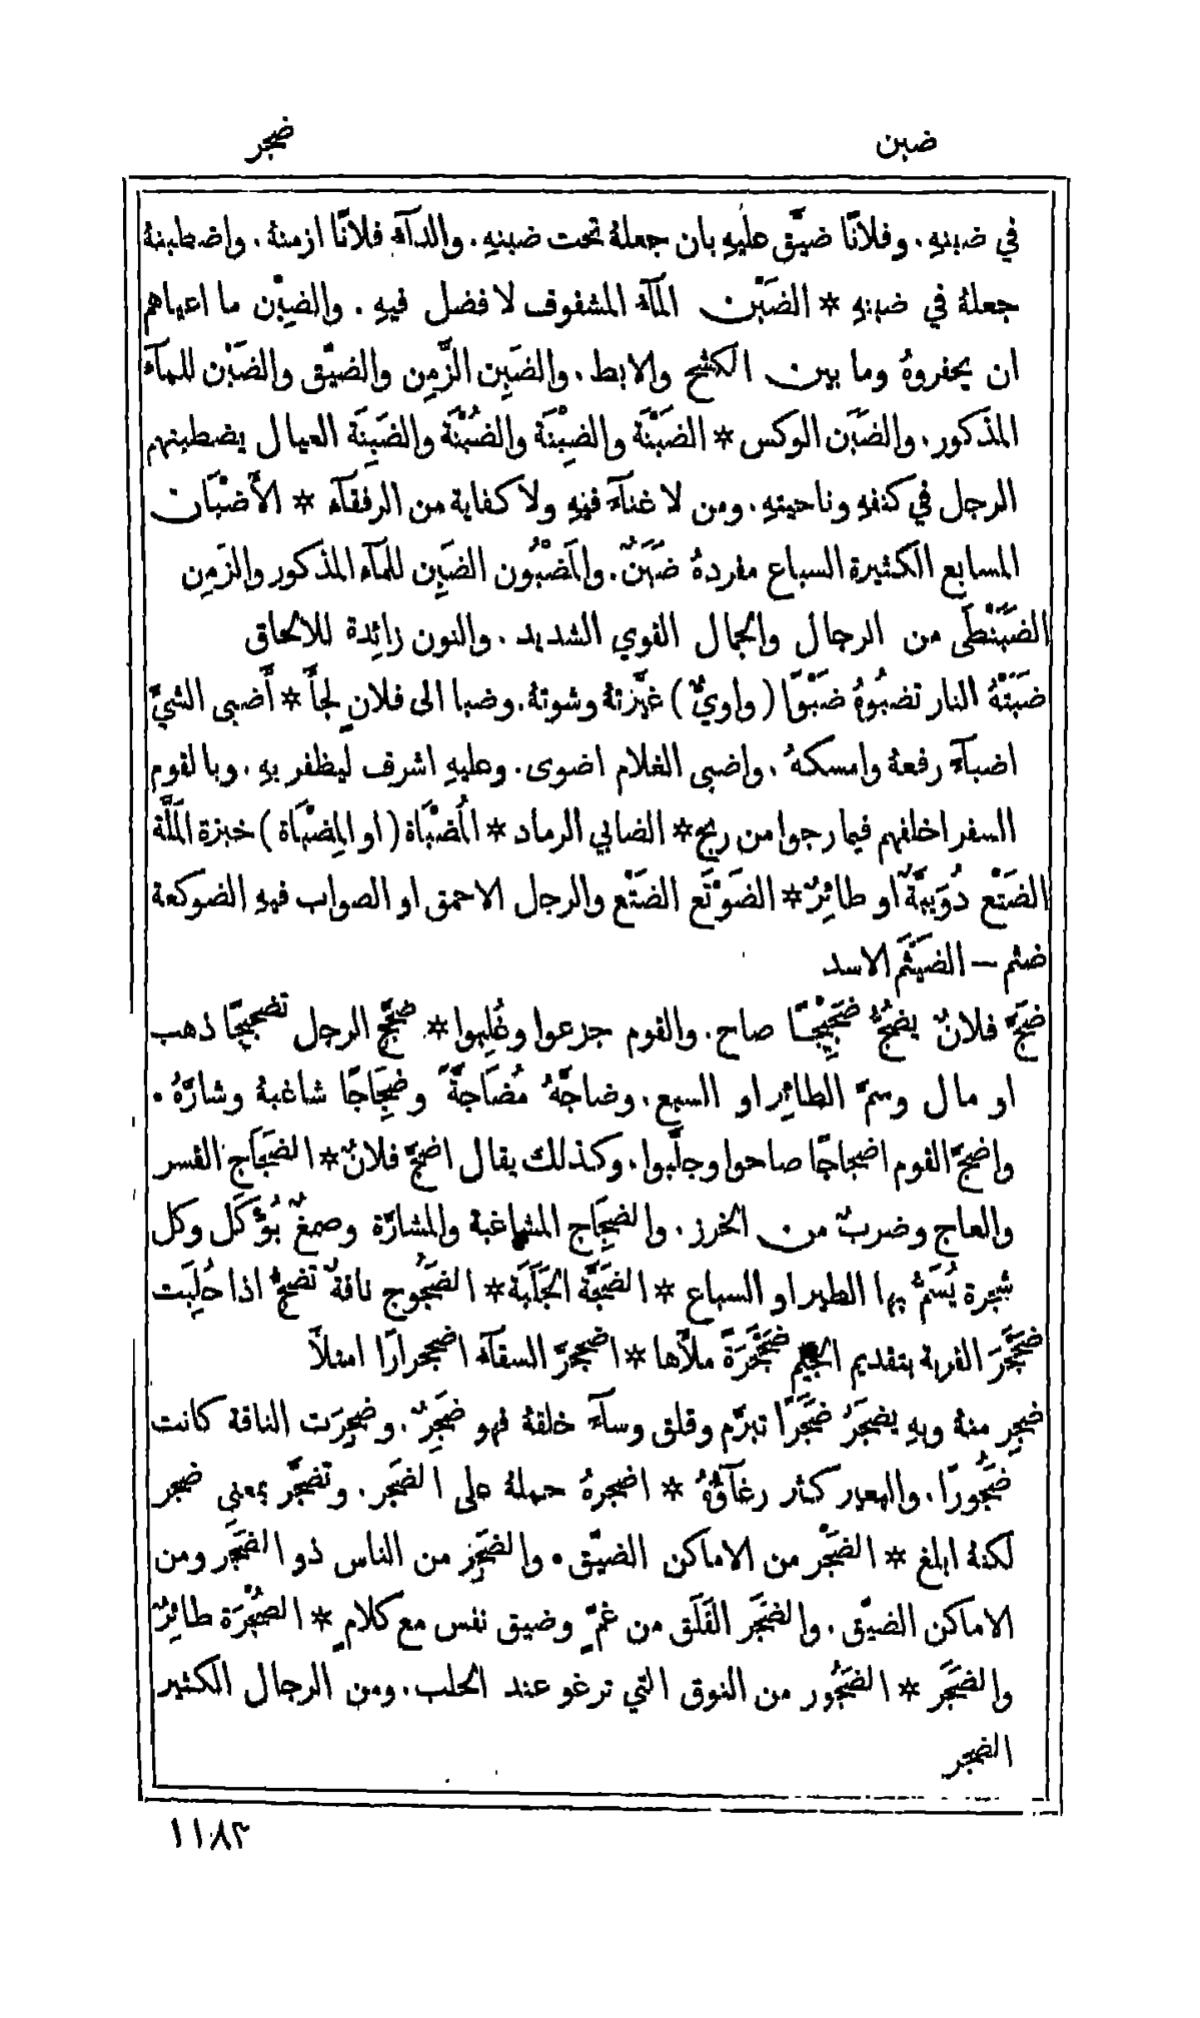 ضبن
ضجر
في ضبنهِ. وفلانًا ضيَّق عليهِ بان جعلهُ تحت ضبنهِ. والدآءُ فلانًا ازمنهُ. واضطبنهُ
جعلهُ في ضبنهِ * الضَبْن المآءُ المشفوف لا فضل فيهِ. والضِبْن ما اعياهم
ان يحفروهُ وما بين الكشح والابط. والضَبِن الزَّمِن والضيّق والضَبْن للمآءِ
المذكور. والضَبَن الوكس * الضَبْنَة والضِبْنَة والضُبْنَة والضَبِنَة العيال يضطبنهم
الرجل في كنفهِ وناحيتهِ. ومن لا غنآءَ فيهِ ولا كفاية من الرفقآءِ * الأَضْبَان
المسابع الكثيرة السباع مفردهُ ضَبَنٌ. والمَضْبُون الضَبِن للمآءِ المذكور والزَمِن
الضَبَنْطَى من الرجال والجمال القوي الشديد. والنون زائدة للالحاق
ضبَتْهُ النار تضبُوهُ ضَبْوًا (واويٌّ) غيَّرتهُ وشوتهُ. وضبا الى فلانٍ لجأَ * أَضبى الشيَّ
اضبآءً رفعهُ وامسكهُ. واضبى الغلام اضوى. وعليهِ اشرف ليظفر بهِ. وبالقوم
السفر اخلفهم فيما رجوا من ربح * الضابي الرماد * المُضْبَاة (او المِضْبَاة) خبزة المَلَّة
الضَتْع دُوَيبَّةٌ او طائرٌ * الضَوْتَع الضَتْع والرجل الاحمق او الصواب فيهِ الضوكعة
ضثم — الضَيْثَم الاسد
ضجَّ فلانٌ يضجُّ ضَجِيْجًا صاح. والقوم جزعوا وغُلِبوا * ضجَّج الرجل تضجيجًا ذهب
او مال وسمّ الطائر او السبع. وضاجَّهُ مُضَاجَّةً وضِجَاجًا شاغبهُ وشارَّهُ.
واضجَّ القوم اضجاجًا صاحوا وجلَّبوا. وكذلك يقال اضجَّ فلانٌ * الضَجَاج القسر
والعاج وضربٌ من الخرز. والضِجَاج المشاغبة والمشارَّة وصمغٌ يُؤْكَل وكل
شجرة يُسَمُّ بها الطير او السباع * الضَجَّة الجَلَبَة * الضَجُوج ناقةٌ تضجُّ اذا حُلِبَت
ضَجْحَرَ القربة بتقديم الجيم ضَجْحَرَةً ملأَها * اضجحرَّ السقآءُ اضجحرارًا امتلأَ
ضجِر منهُ وبهِ يضجَرُ ضَجَرًا تبرَّم وقلق وسآءَ خلقهُ فهو ضَجِرٌ. وضجِرَت الناقة كانت
ضَجُورًا. والبعير كثر رغآؤُهُ * اضجرهُ حملهُ على الضَجَر. وتضجَّر بمعنى ضجر
لكنهُ ابلغ * الضَجْر من الاماكن الضيّق. والضَجِر من الناس ذو الضَجَر ومن
الاماكن الضيّق. والضَجَر القَلَق من غمٍّ وضيق نفس مع كلامٍ * الضُجْرَة طائرٌ
والضَجَر * الضَجُور من النوق التي ترغو عند الحلب. ومن الرجال الكثير
الضجر
١١٨٣